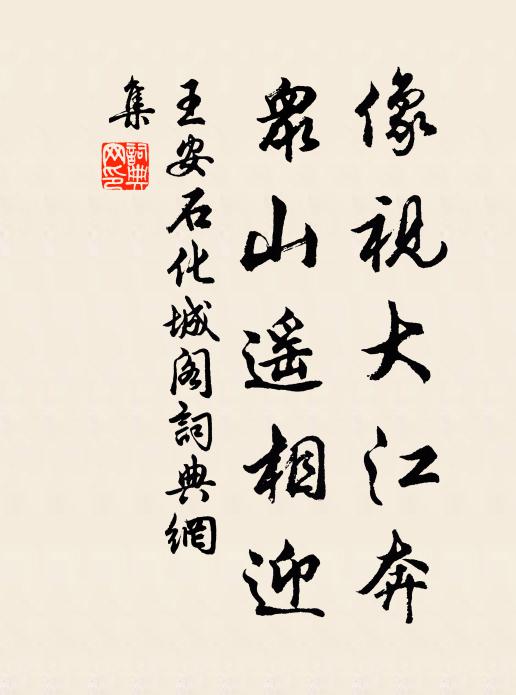 像視大江奔
眾山遙相迎
王安石化城閣詞典網
集
詞典
网印